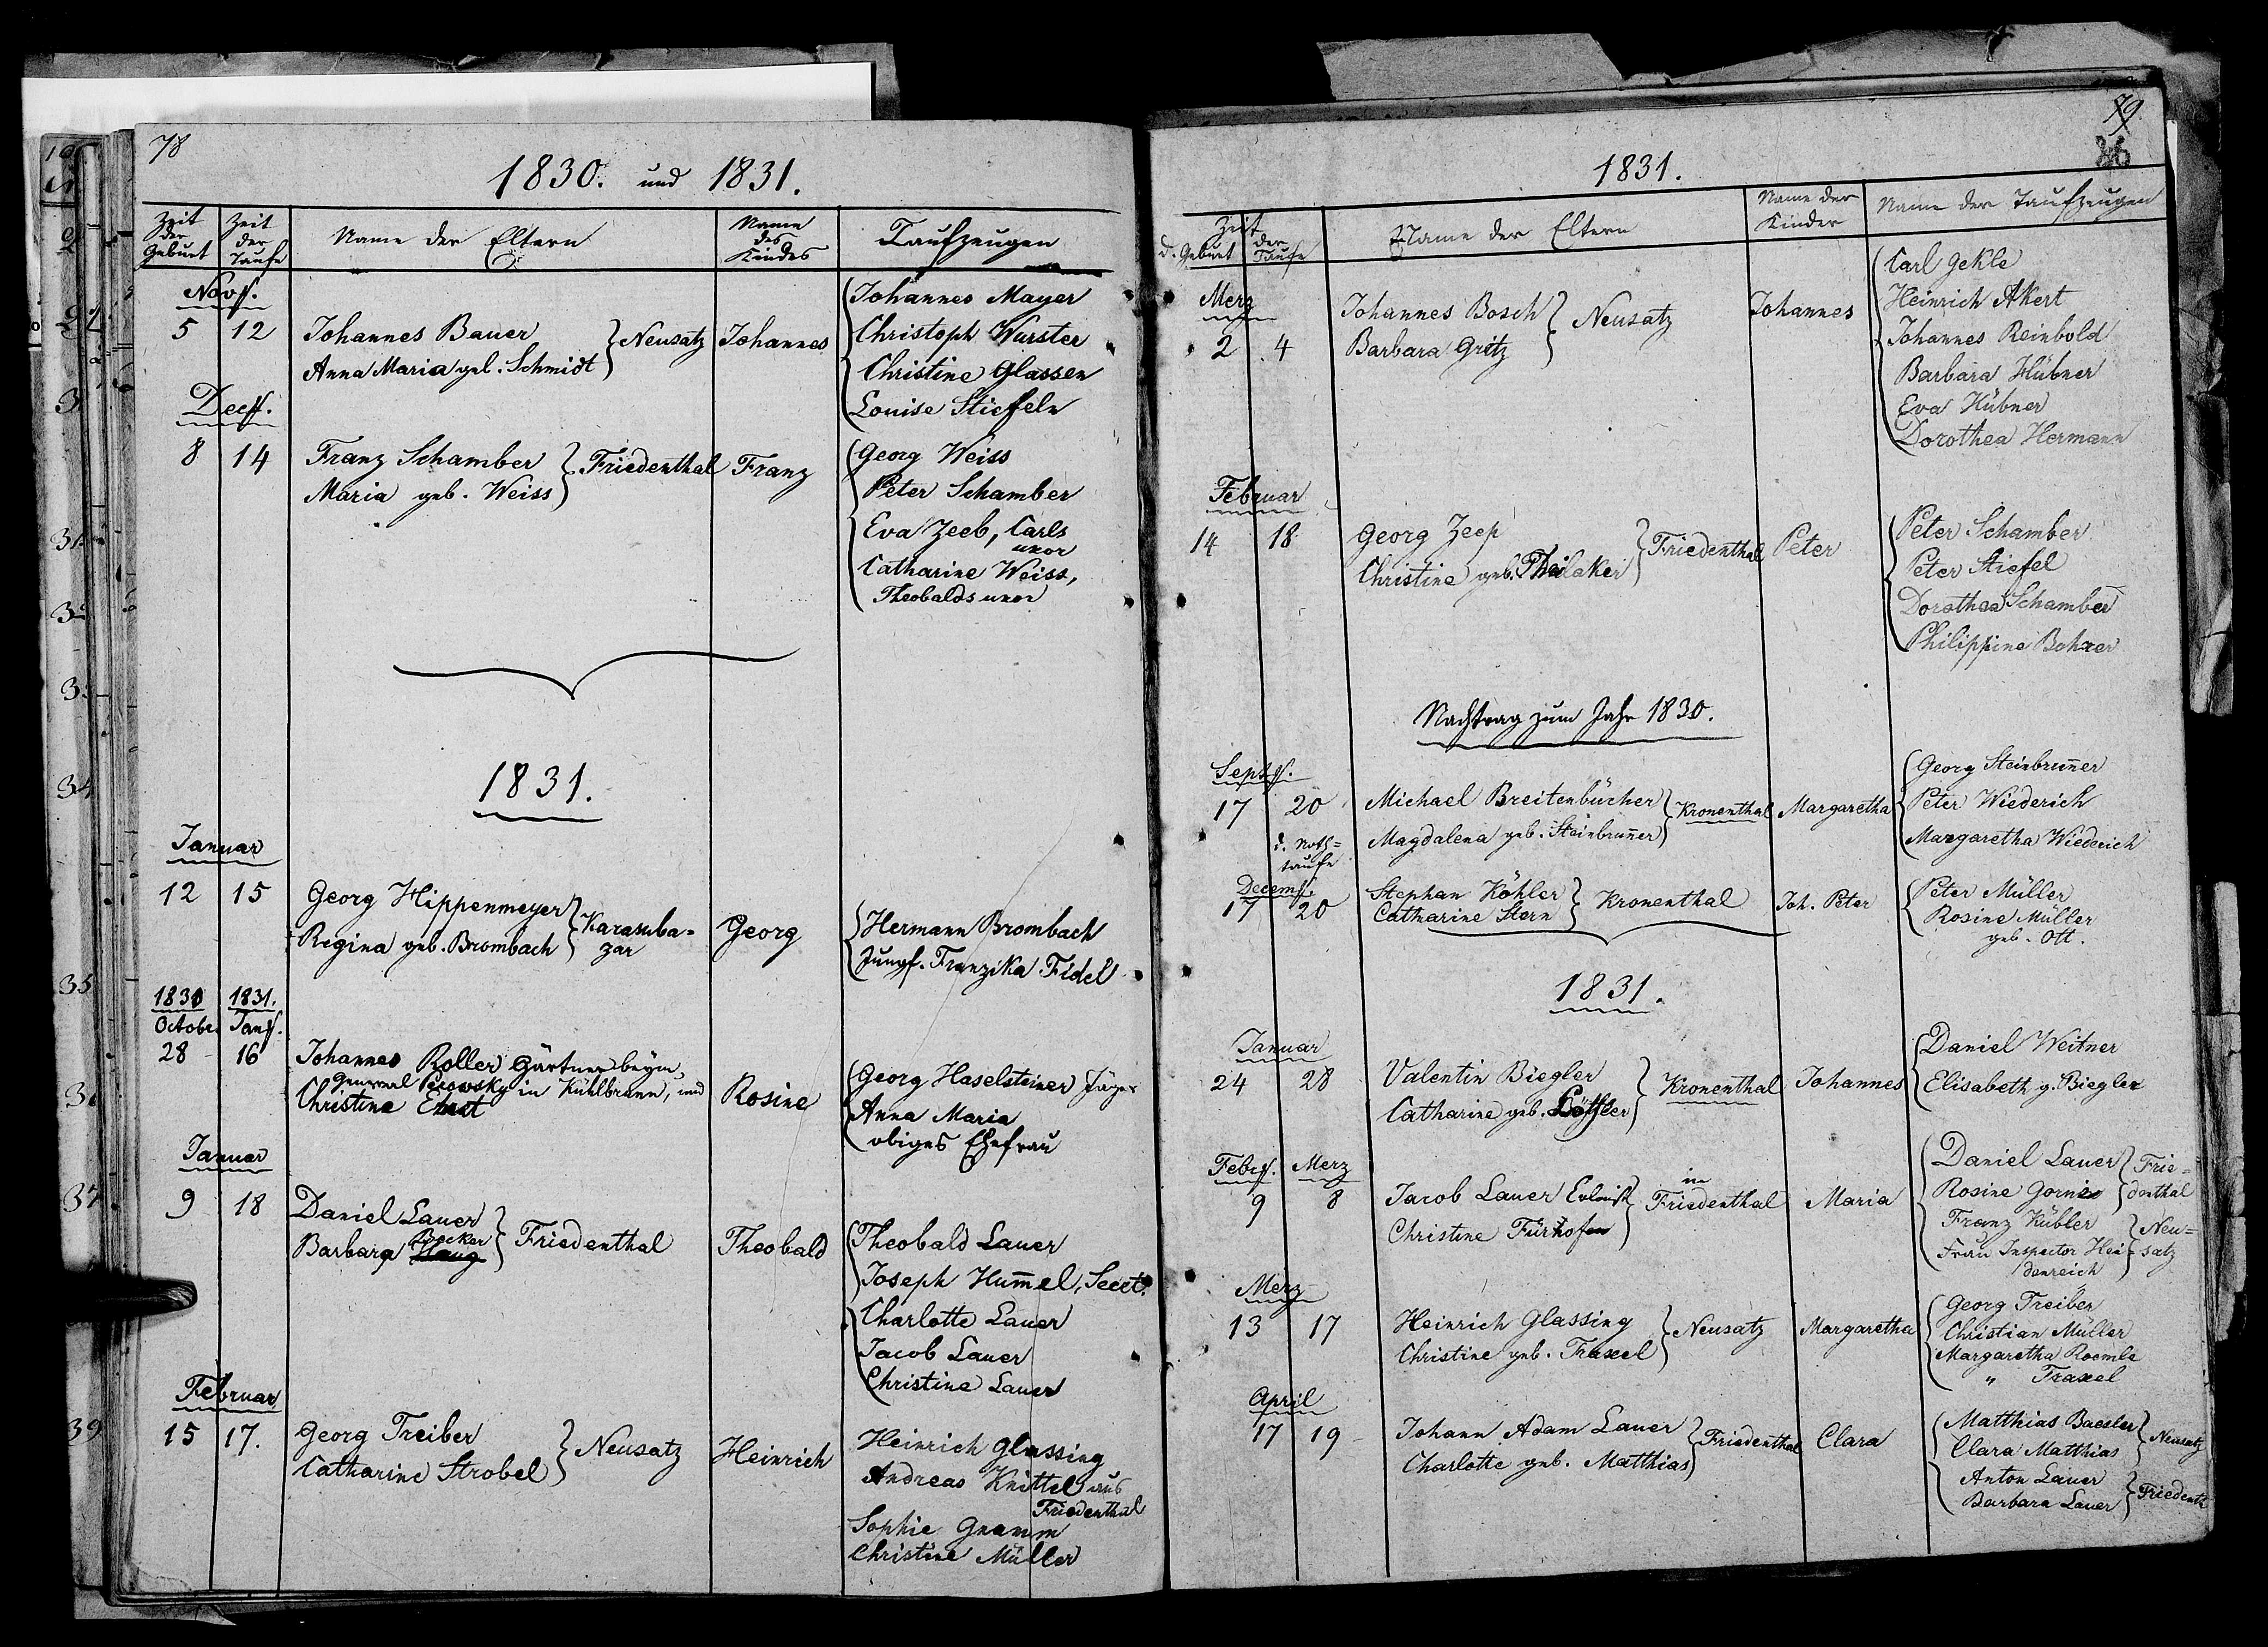 78
1830. und 1831.
Zeit der Geburt
Zeit der Taufe
Name der Eltern
Name des Kindes
Taufzeugen
Novʃ.
5 12 Johannes Bauer
Anna Maria gel. Schmidt } Neusatz Johannes
Johannes Mayer
Christoph Wurster
Christine Glassen
Louise Stiefeln
Decʃ.
8 14 Franz Schamber
Maria geb. Weiss } Friedenthal Franz
Georg Weiss
Peter Schamber
Eva Zeeb, Carls
uxor
Catharine Weiss,
Theobalds uxor
1831.
Januar
12 15 Georg Hippenmeyer
Regina geb. Brombach } Karasuba-
zar Georg
Hermann Brombach
Jungf. Franzika Fidel
1830 1831.
Octobr. Janʃ.
28 16 Johannes Roller Gärtner beym
General Perowsky in Kühlbrunn, und
Christina Ernst
Rosine
Georg Haselsteiner Jäger
Anna Maria
obiges Ehefrau
Januar
9 18 Daniel Lauer
Becker
Barbara Haug } Friedenthal Theobald
Theobald Lauer
Joseph Hum̄el, Secet.
Charlotte Lauer
Jacob Lauer
Christine Lauer
Februar
15 17. Georg Treiber
Catharine Strobel } Neusatz Heinrich
Heinrich Glassing
Andreas Knittel aus
Friedenthal
Sophie Gramm
Christine Müller
79
86
1831.
Zeit
d. Geburt der Taufe
Name der Eltern
Name der Kinder
Name der Taufzeugen
Merz
2 4 Johannes Bosch
Barbara Gritz } Neusatz Johannes
Carl Gekle
Heinrich Akert
Johannes Reinbold
Barbara Hübner
Eva Hübner
Dorothea Hermann
Februar
14 18 Georg Zeep
Christine geb. Theilaker } Friedenthal Peter
Peter Schamber
Peter Stiefel
Dorothea Schamber
Philippine Bohrer
Nachtrag zum Jahr 1830.
Septʃ.
17 20 Michael Breitenbücher
Magdalena geb. Steinbrun̄er } Kronenthal Margaretha
d. Noth=
taufe
Georg Steinbrun̄er
Peter Wiederich
Margaretha Wiederich
Decemʃ.
17 20 Stephan Köhler
Catharine Stern } Kronenthal Joh. Peter
Peter Müller
Rosine Müller
geb. Ott.
1831.
Januar
24 28 Valentin Biegler
Catharine geb. Löffler } Kronenthal Johannes
Daniel Weitner
Elisabeth g. Biegler
Febrʃ. Merz
9 8 Jacob Lauer Colonist in
Christine Fürhofen } Friedenthal Maria
Daniel Lauer
Rosine Gornies } Frie=
denthal
Franz Kübler
Frau Inspector Hei
denreich } Neu=
satz
Merz
13 17 Heinrich Glassing
Christine geb. Traxel } Neusatz Margaretha
Georg Treiber
Christian Müller
Margaretha Roemle
" Traxel
April
17 19 Johann Adam Lauer
Charlotte geb. Matthias } Friedenthal Clara
Matthias Baesler
Clara Matthias } Neusatz
Anton Lauer
Barbara Lauer } Friedenth